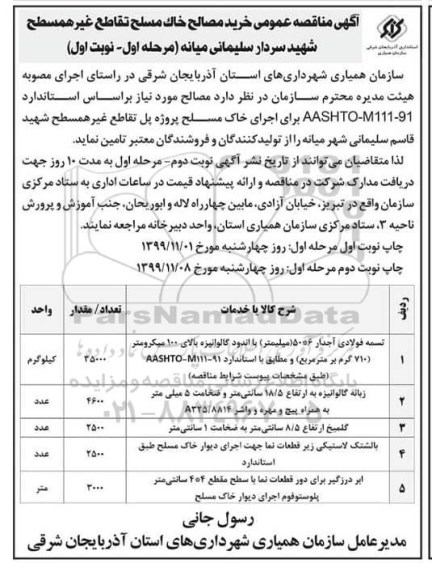 آگهی مناقصه عمومی خرید مصالح خاک مسلح تقاطع غیر همسطح
شهید سردار سلیمانی میانه (مرحله اول- نوبت اول)
استانداری آذربایجان شرقی
سازمان همیاری
سازمان همیاری شهرداری‌های استان آذربایجان شرقی در راستای اجرای مصوبه
هیئت مدیره محترم سازمان در نظر دارد مصالح مورد نیاز براساس استاندارد
AASHTO-M111-91 برای اجرای خاک مسلح پروژه پل تقاطع غیرهمسطح شهید
قاسم سلیمانی شهر میانه را از تولیدکنندگان و فروشندگان معتبر تامین نماید.
لذا متقاضیان می‌توانند از تاریخ نشر آگهی نوبت دوم- مرحله اول به مدت ۱۰ روز جهت
دریافت مدارک شرکت در مناقصه و ارائه پیشنهاد قیمت در ساعات اداری به ستاد مرکزی
سازمان واقع در تبریز، خیابان آزادی، مابین چهارراه لاله و ابوریحان، جنب آموزش و پرورش
ناحیه ۳، ستاد مرکزی سازمان همیاری استان، واحد دبیرخانه مراجعه نمایند.
چاپ نوبت اول مرحله اول: روز چهارشنبه مورخ ۱۳۹۹/۱۱/۰۱
چاپ نوبت دوم مرحله اول: روز چهارشنبه مورخ ۱۳۹۹/۱۱/۰۸
ردیف شرح کالا یا خدمات تعداد/ مقدار واحد
۱ تسمه فولادی آجدار ۶*۵۰(میلیمتر) با اندود گالوانیزه بالای ۱۰۰ میکرومتر
(۷۱۰ گرم بر مترمربع) و مطابق با استاندارد AASHTO-M111-91
(طبق مشخصات پیوست شرایط مناقصه) ۳۵۰۰۰ کیلوگرم
۲ زبانه گالوانیزه به ارتفاع ۱۸/۵ سانتی‌متر و ضخامت ۵ میلی متر
به همراه پیچ و مهره و واشر A۳۲۵/۸۸۱۴ ۴۶۰۰ عدد
۳ گلمیخ ارتفاع ۸/۵ سانتی‌متر به ضخامت ۱ سانتی‌متر ۲۵۰۰ عدد
۴ بالشتک لاستیکی زیر قطعات نما جهت اجرای دیوار خاک مسلح طبق
استاندارد ۲۵۰۰ عدد
۵ ابر درزگیر برای دور قطعات نما با سطح مقطع ۴*۴ سانتی‌متر
پلوستوفوم اجرای دیوار خاک مسلح ۳۰۰۰ متر
ParsNamadData
پایگاه اطلاع رسانی مناقصه و مزایده
۰۲۱-۸۸۳۴۹۶۷۰-۵
رسول جانی
مدیرعامل سازمان همیاری شهرداری‌های استان آذربایجان شرقی